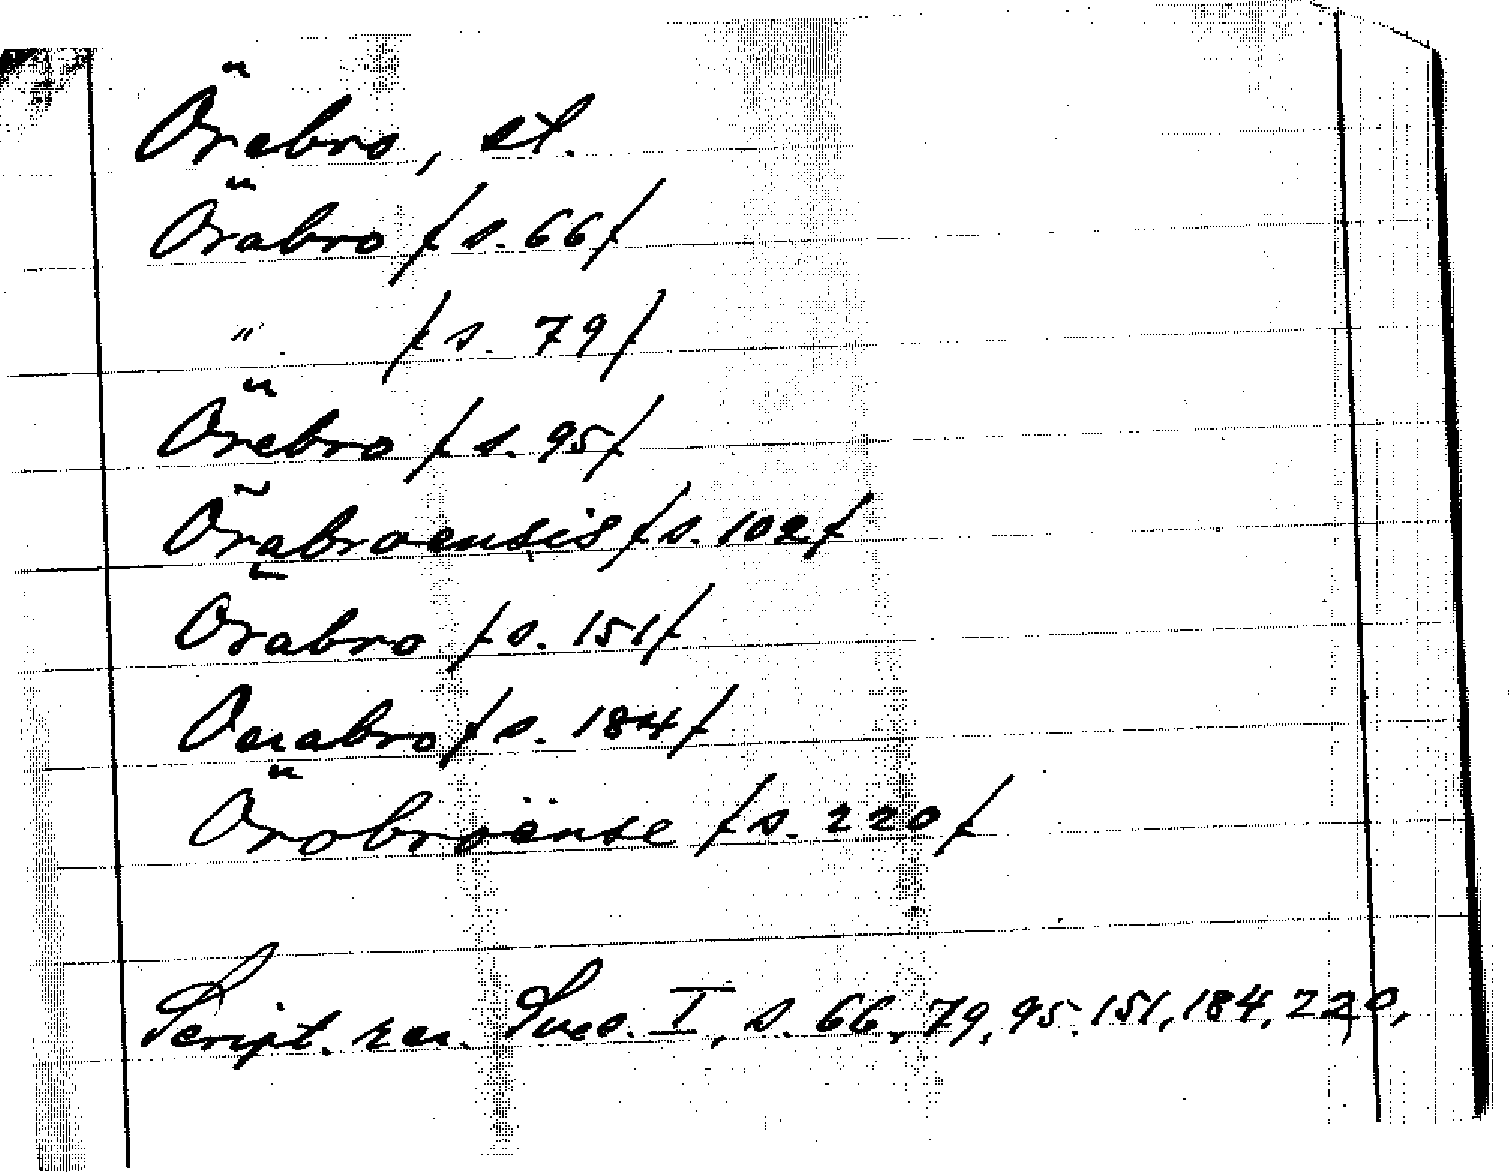 Örebro, st.
Örabro /s. 66/
" /s. 79/
Örebro /s. 95/
Örabroensis /s. 102/
Orabro /s. 151/
Oerabro /s. 184/
Örobroënse /s. 220/
Script. rer. Suec. I, s. 66, 79, 95, 151, 184, 220,